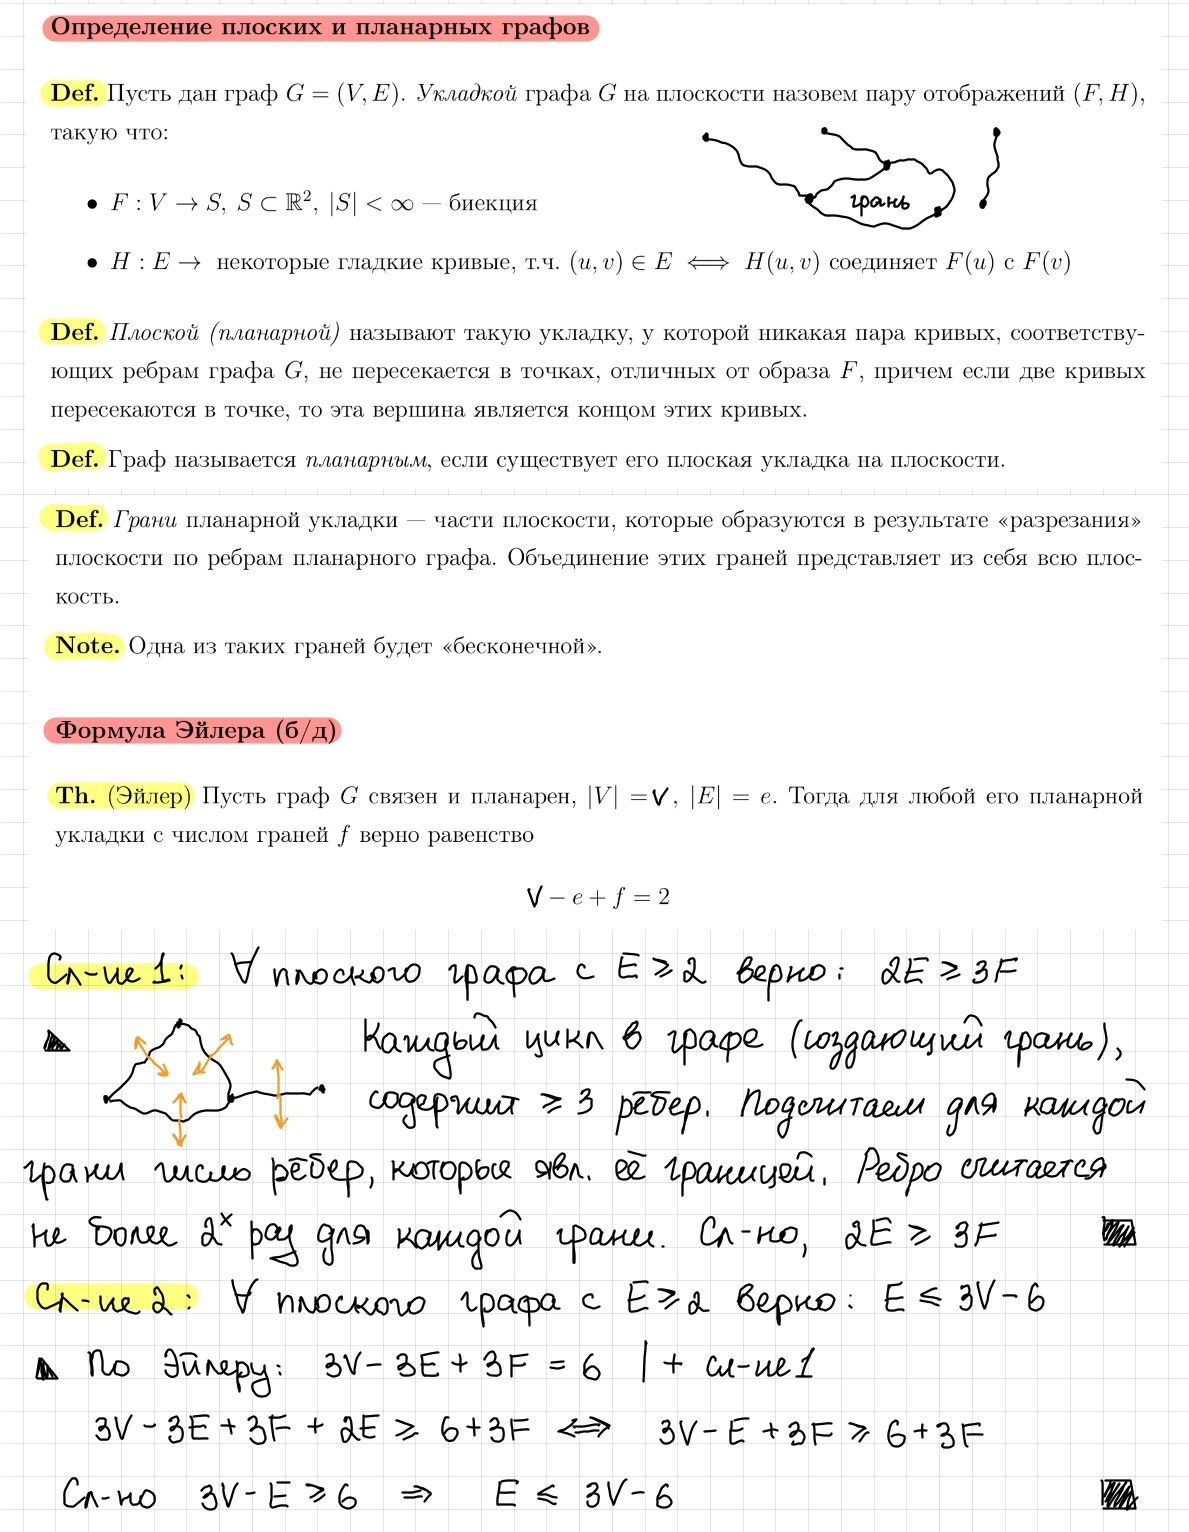 Определение плоских и планарных графов
Def. Пусть дан граф G = (V, E). Укладкой графа G на плоскости назовем пару отображений (F, H),
такую что:
грань
• F : V → S, S ⊂ ℝ², |S| < ∞ — биекция
• H : E → некоторые гладкие кривые, т.ч. (u, v) ∈ E ⟺ H(u, v) соединяет F(u) с F(v)
Def. Плоской (планарной) называют такую укладку, у которой никакая пара кривых, соответству-
ющих ребрам графа G, не пересекается в точках, отличных от образа F, причем если две кривых
пересекаются в точке, то эта вершина является концом этих кривых.
Def. Граф называется планарным, если существует его плоская укладка на плоскости.
Def. Грани планарной укладки — части плоскости, которые образуются в результате «разрезания»
плоскости по ребрам планарного графа. Объединение этих граней представляет из себя всю плос-
кость.
Note. Одна из таких граней будет «бесконечной».
Формула Эйлера (б/д)
Th. (Эйлер) Пусть граф G связен и планарен, |V| = V, |E| = e. Тогда для любой его планарной
укладки с числом граней f верно равенство
V − e + f = 2
Сл-ие 1: ∀ плоского графа с E ⩾ 2 верно: 2E ⩾ 3F
Каждый цикл в графе (создающий грань),
содержит ⩾ 3 рёбер. Подсчитаем для каждой
грани число рёбер, которые явл. её границей. Ребро считается
не более 2ˣ раз для каждой грани. Сл-но, 2E ⩾ 3F
Сл-ие 2: ∀ плоского графа с E ⩾ 2 верно: E ⩽ 3V - 6
По Эйлеру: 3V - 3E + 3F = 6 | + сл-ие 1
3V - 3E + 3F + 2E ⩾ 6 + 3F ⟺ 3V - E + 3F ⩾ 6 + 3F
Сл-но 3V - E ⩾ 6 ⇒ E ⩽ 3V - 6